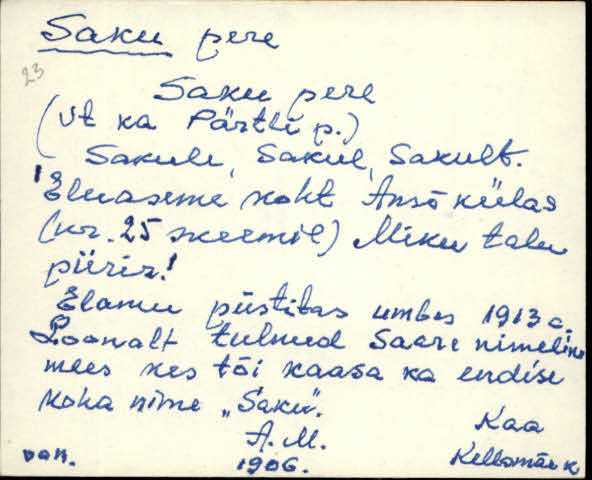 Saku pere
23
Saku pere
(Vt ka Pärtli p.)
Sakule, Sakul, Sakult.
Eluaseme koht Ansi külas
(nr. 25 skeemil) Miku talu
piiris!
Elamu püstitas umbes 1913 a.
Loonalt tulnud Saare nimeline
mees kes tõi kaasa ka endise
koha nime „Saku".
A. M. Kaa
van. 1906. Kellamäe k